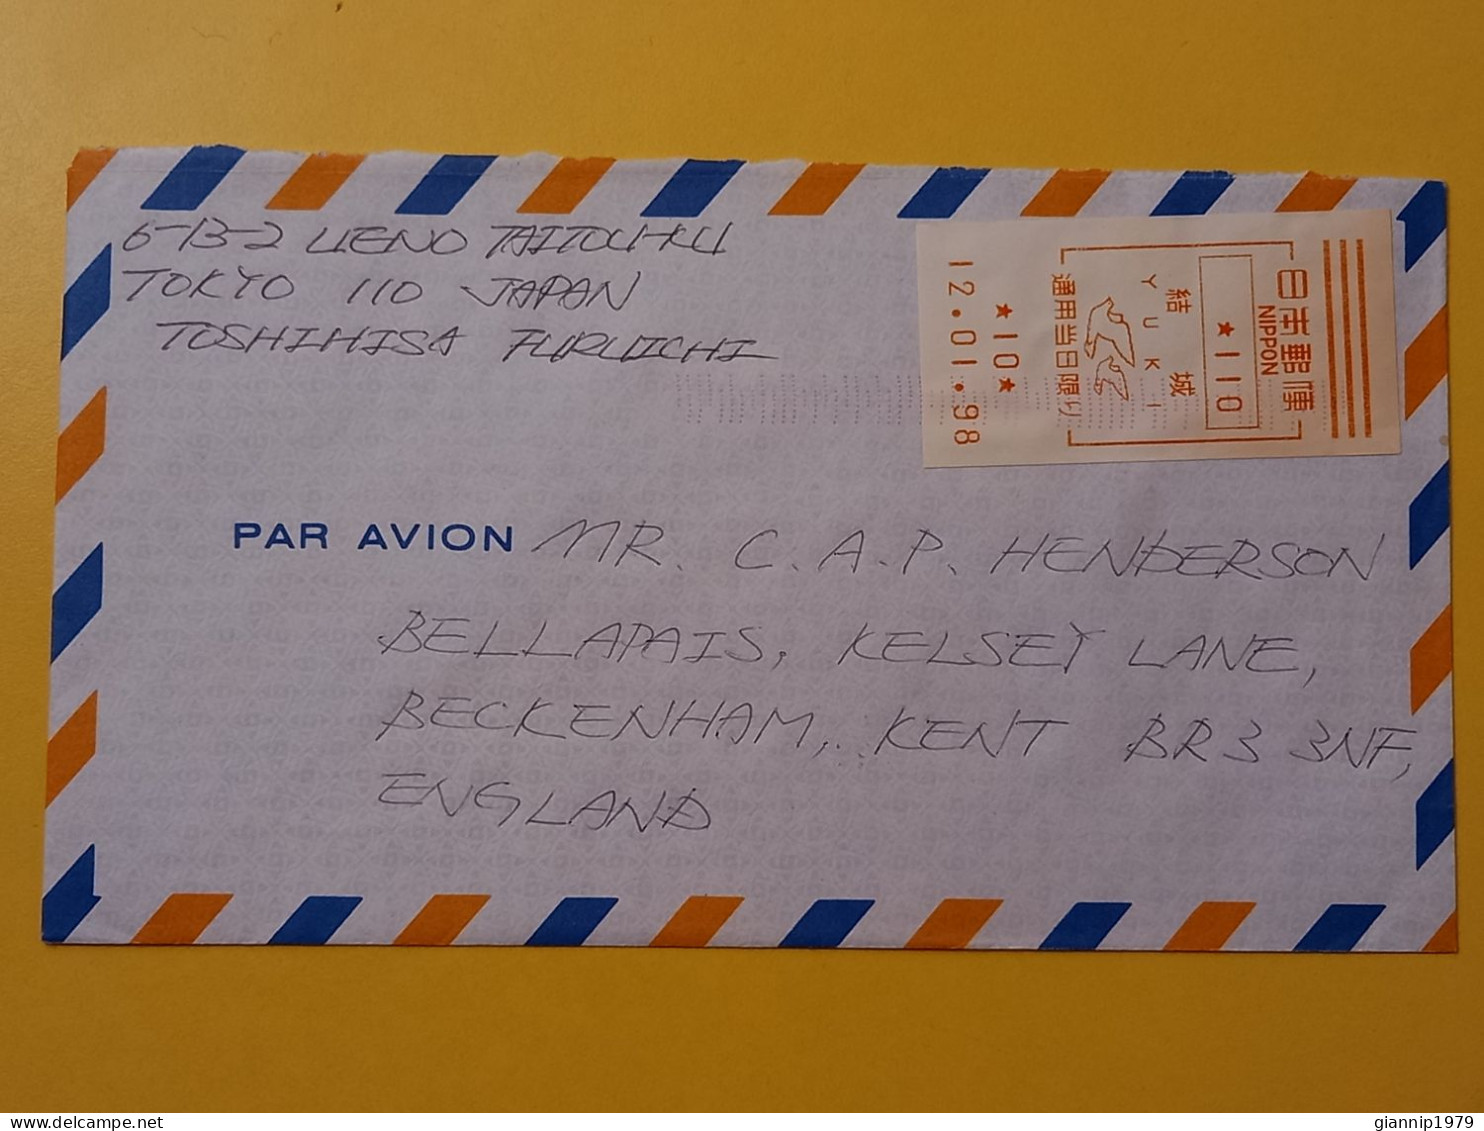 6-13-2 UENO TAITOU-KU
TOKYO 110 JAPAN
TOSHIHISA FURUICHI
日本郵便
NIPPON
★110
結城
YUKI
通用当日限り
★10★
12.01.98
PAR AVION
MR. C.A.P. HENDERSON
BELLAPAIS, KELSEY LANE,
BECKENHAM, KENT BR3 3NF,
ENGLAND
giannip1979